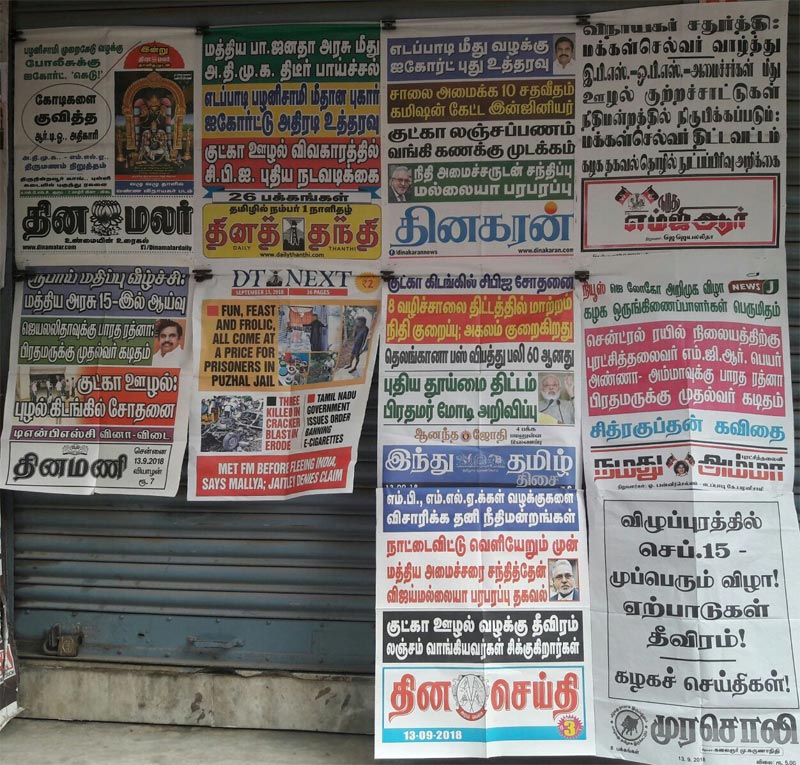 பழனிசாமி முறைகேடு வழக்கு
போலீசுக்கு
ஐகோர்ட் 'கெடு!'
கோடிகளை
குவித்த
ஆர்.டி.ஓ., அதிகாரி
அ.தி.மு.க., - எம்.எல்.ஏ.,
திருமணம் நிறுத்தம்
இன்று
தின மலர்
உண்மையின் உரைகல்
www.dinamalar.com
/Dinamalardaily
மத்திய பா.ஜனதா அரசு மீது
அ.தி.மு.க. திடீர் பாய்ச்சல்
எடப்பாடி பழனிசாமி மீதான புகார்
ஐகோர்ட்டு அதிரடி உத்தரவு
குட்கா ஊழல் விவகாரத்தில்
சி.பி.ஐ. புதிய நடவடிக்கை
26 பக்கங்கள்
தமிழில் நம்பர் 1 நாளிதழ்
தினத் தந்தி
DAILY THANTHI
www.dailythanthi.com
எடப்பாடி மீது வழக்கு
ஐகோர்ட் புது உத்தரவு
சாலை அமைக்க 10 சதவீதம்
கமிஷன் கேட்ட இன்ஜினியர்
குட்கா லஞ்சப்பணம்
வங்கி கணக்கு முடக்கம்
நிதி அமைச்சருடன் சந்திப்பு
மல்லையா பரபரப்பு
தினகரன்
/dinakarannews
www.dinakaran.com
விநாயகர் சதுர்த்தி:
மக்கள்செல்வர் வாழ்த்து
இ.பி.எஸ்.-ஓ.பி.எஸ்.-அமைச்சர்கள் மீது
ஊழல் குற்றச்சாட்டுகள்
நீதிமன்றத்தில் நிரூபிக்கப்படும்:
மக்கள்செல்வர் திட்டவட்டம்
கழக தகவல் தொழில் நுட்பப்பிரிவு அறிவிக்கை
எம்ஜிஆர்
ஜெ.ஜெயலலிதா
ரூபாய் மதிப்பு வீழ்ச்சி:
மத்திய அரசு 15-இல் ஆய்வு
ஜெயலலிதாவுக்கு பாரத ரத்னா:
பிரதமருக்கு முதல்வர் கடிதம்
குட்கா ஊழல்:
புழல் கிடங்கில் சோதனை
டிஎன்பிஎஸ்சி வினா-விடை
தினமணி
சென்னை
13.9.2018
வியாழன்
ரூ. 7
DT NEXT
₹2
SEPTEMBER 13, 2018
16 PAGES
FUN, FEAST
AND FROLIC,
ALL COME AT
A PRICE FOR
PRISONERS IN
PUZHAL JAIL
THREE
KILLED IN
CRACKER
BLAST IN
ERODE
TAMIL NADU
GOVERNMENT
ISSUES ORDER
BANNING
E-CIGARETTES
MET FM BEFORE FLEEING INDIA,
SAYS MALLYA; JAITLEY DENIES CLAIM
குட்கா கிடங்கில் சிபிஐ சோதனை
8 வழிச்சாலை திட்டத்தில் மாற்றம்
நிதி குறைப்பு; அகலம் குறைகிறது
தெலங்கானா பஸ் விபத்து பலி 60 ஆனது
புதிய தூய்மை திட்டம்
பிரதமர் மோடி அறிவிப்பு
ஆனந்த ஜோதி
4 பக்க
இணைப்பு
இந்து தமிழ்
திசை
நியூஸ் ஜெ லோகோ அறிமுக விழா
NEWS J
கழக ஒருங்கிணைப்பாளர்கள் பெருமிதம்
சென்ட்ரல் ரயில் நிலையத்திற்கு
புரட்சித்தலைவர் எம்.ஜி.ஆர். பெயர்
அண்ணா- அம்மாவுக்கு பாரத ரத்னா
பிரதமருக்கு முதல்வர் கடிதம்
சித்ரகுப்தன் கவிதை
புரட்சித்தலைவி
நமது அம்மா
எம்.பி., எம்.எல்.ஏ.க்கள் வழக்குகளை
விசாரிக்க தனி நீதிமன்றங்கள்
நாட்டைவிட்டு வெளியேறும் முன்
மத்திய அமைச்சரை சந்தித்தேன்
விஜய்மல்லையா பரபரப்பு தகவல்
குட்கா ஊழல் வழக்கு தீவிரம்
லஞ்சம் வாங்கியவர்கள் சிக்குகிறார்கள்
தின செய்தி
13-09-2018
3
விழுப்புரத்தில்
செப்.15 -
முப்பெரும் விழா!
ஏற்பாடுகள்
தீவிரம்!
கழகச் செய்திகள்!
முரசொலி
8 பக்கங்கள்
கலைஞர் மு.கருணாநிதி
13. 9. 2018
விலை: ரூ. 5.00